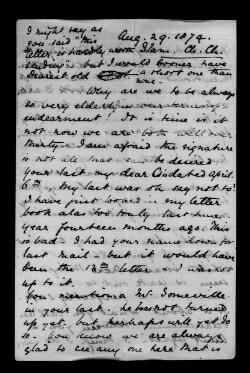 I might say as
you said "this Aug. 29. 1874.
letter is hardly worth Ilam. Ch. Ch.
but I would sooner have
Dearest old a short one than
none.
Why are we to be always
so very elderly in our
endearment! It is time is it
not now we are both
thirty. I am afraid the signature
is not all that can be desired
Your last my dear dated April
6th. My last was oh say not to!
I have just looked in my letter
book alas too truly last June
year fourteen months ago. This
is bad. I had your name down for
last mail - but it would have
been the 13th letter and I was not
up to it.
You mention a Mr. Somerville
in your last. he has not turned
up yet, but perhaps will yet do
so - You know we are always
glad to see any one here that is